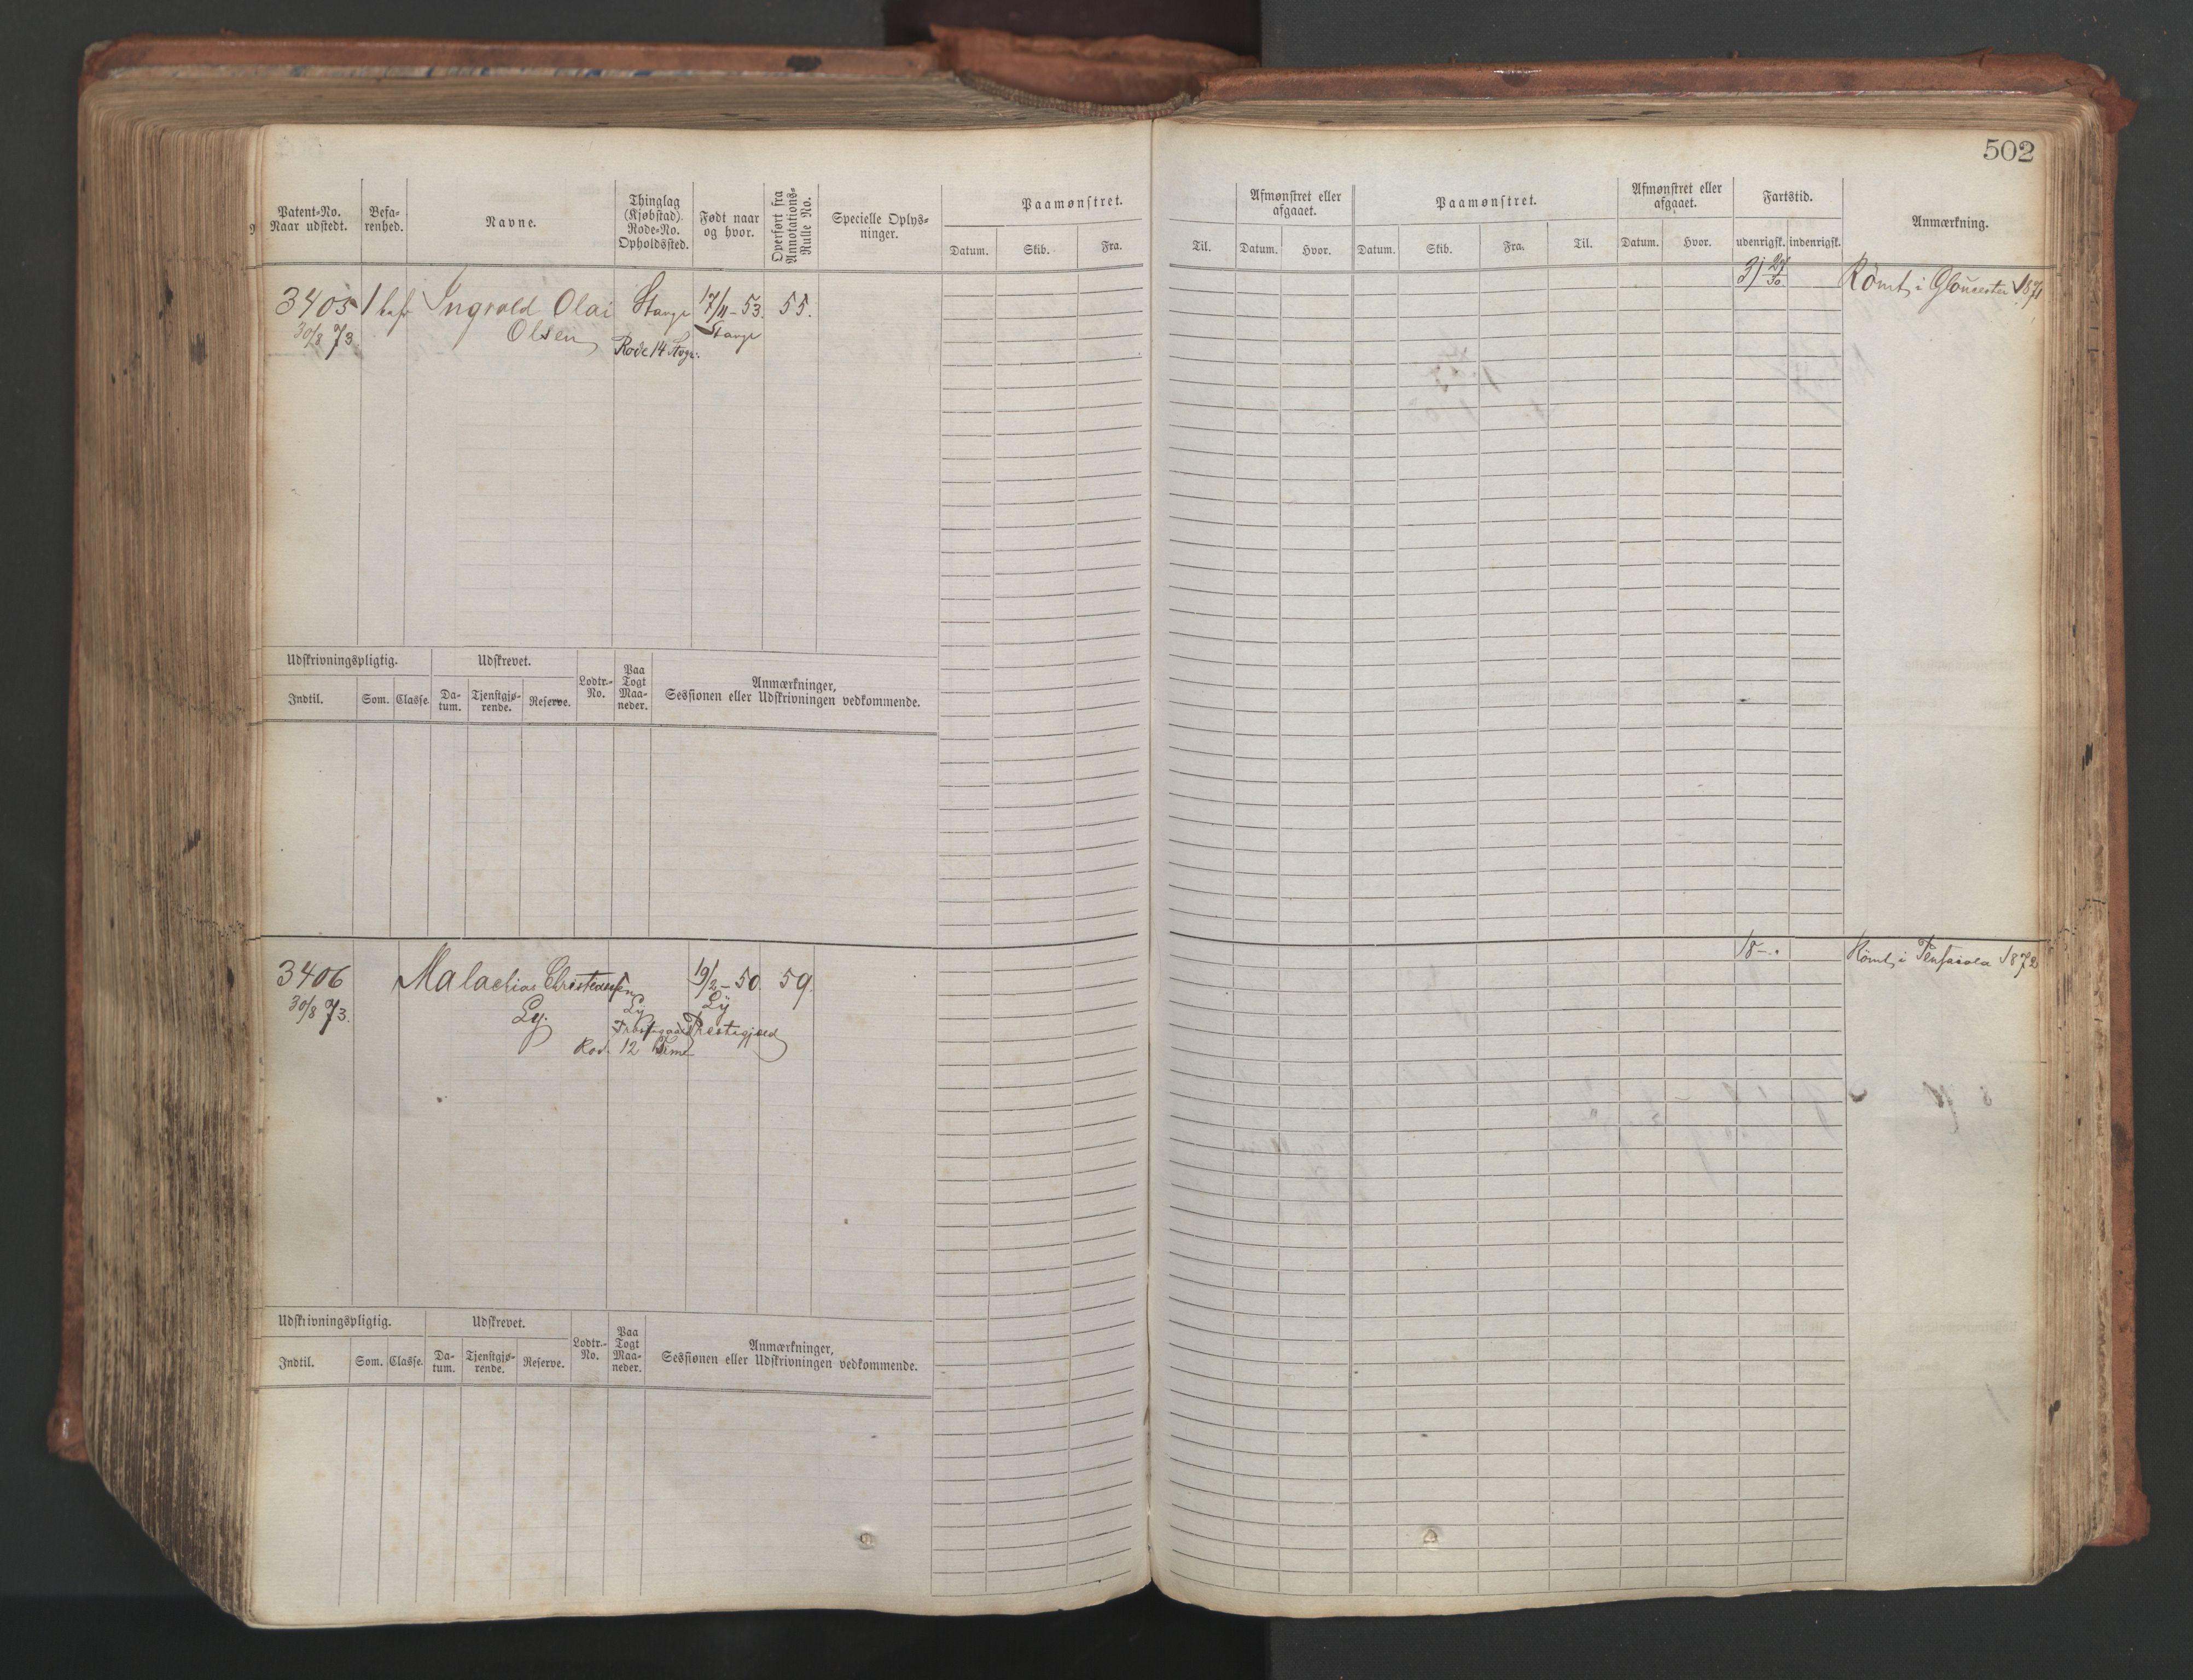 502
Patent=No. Naar udstedt.
Befa=renhed.
Navne.
Thinglag (Kjøbstad). Rode=No. Opholdssted.
Født naar og hvor.
Overført fra Annotations=Rulle No.
Specielle Oplys=ninger.
Paamønstret.
Datum. Skib. Fra. Til.
Afmønstret eller afgaaet.
Datum. Hvor.
Paamønstret.
Datum. Skib. Fra. Til.
Afmønstret eller afgaaet.
Datum. Hvor.
Fartstid.
udenrigsk. indenrigsk.
Anmærkning.
3405 Ingvald Olai 17/11-53. 55. Rømt i Gloucester 1871
30/8 73. Olsen
Rode 14
Udskrivningspligtig. Udskrevet. Lodtr.=No. Paa Togt Maa=neder. Anmærkninger, Sessionen eller Udskrivningen vedkommende.
Indtil. Som. Classe. Da=tum. Tjenstgjø=rende. Reserve.
3406 Malachias Christensen 19/2-50. 59. 18 Rømt i Pensacola 1872
30/8 73. Ly. Ly Ly
Prestegjeld
Rod. 12
Udskrivningspligtig. Udskrevet. Lodtr.=No. Paa Togt Maa=neder. Anmærkninger, Sessionen eller Udskrivningen vedkommende.
Indtil. Som. Classe. Da=tum. Tjenstgjø=rende. Reserve.